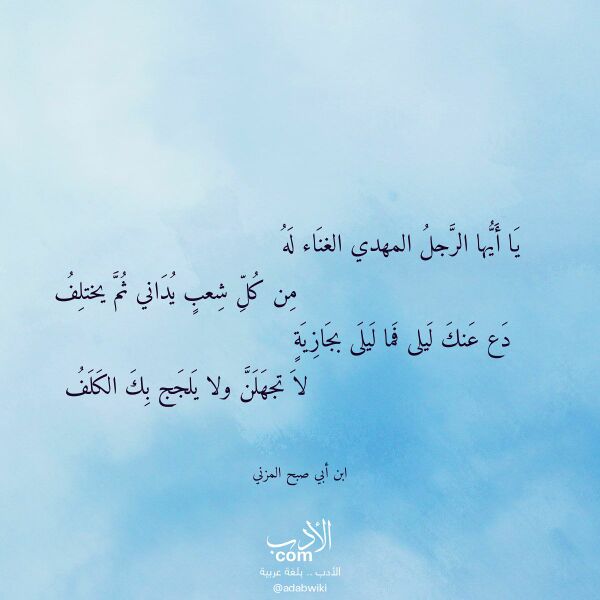 يَا أَيُّها الرَّجلُ المهدي الغنَاء لَهُ
مِن كُلِّ شِعبٍ يُدَاني ثُمَّ يختلِفُ
دَع عَنكَ لَيلى فَما لَيلَى بجَازِيَةٍ
لاَ تجهَلَنَّ ولا يَلجَج بِكَ الكَلَفُ
ابن أبي صبح المزني
الأدب
com
الأدب .. بلغة عربية
@adabwiki